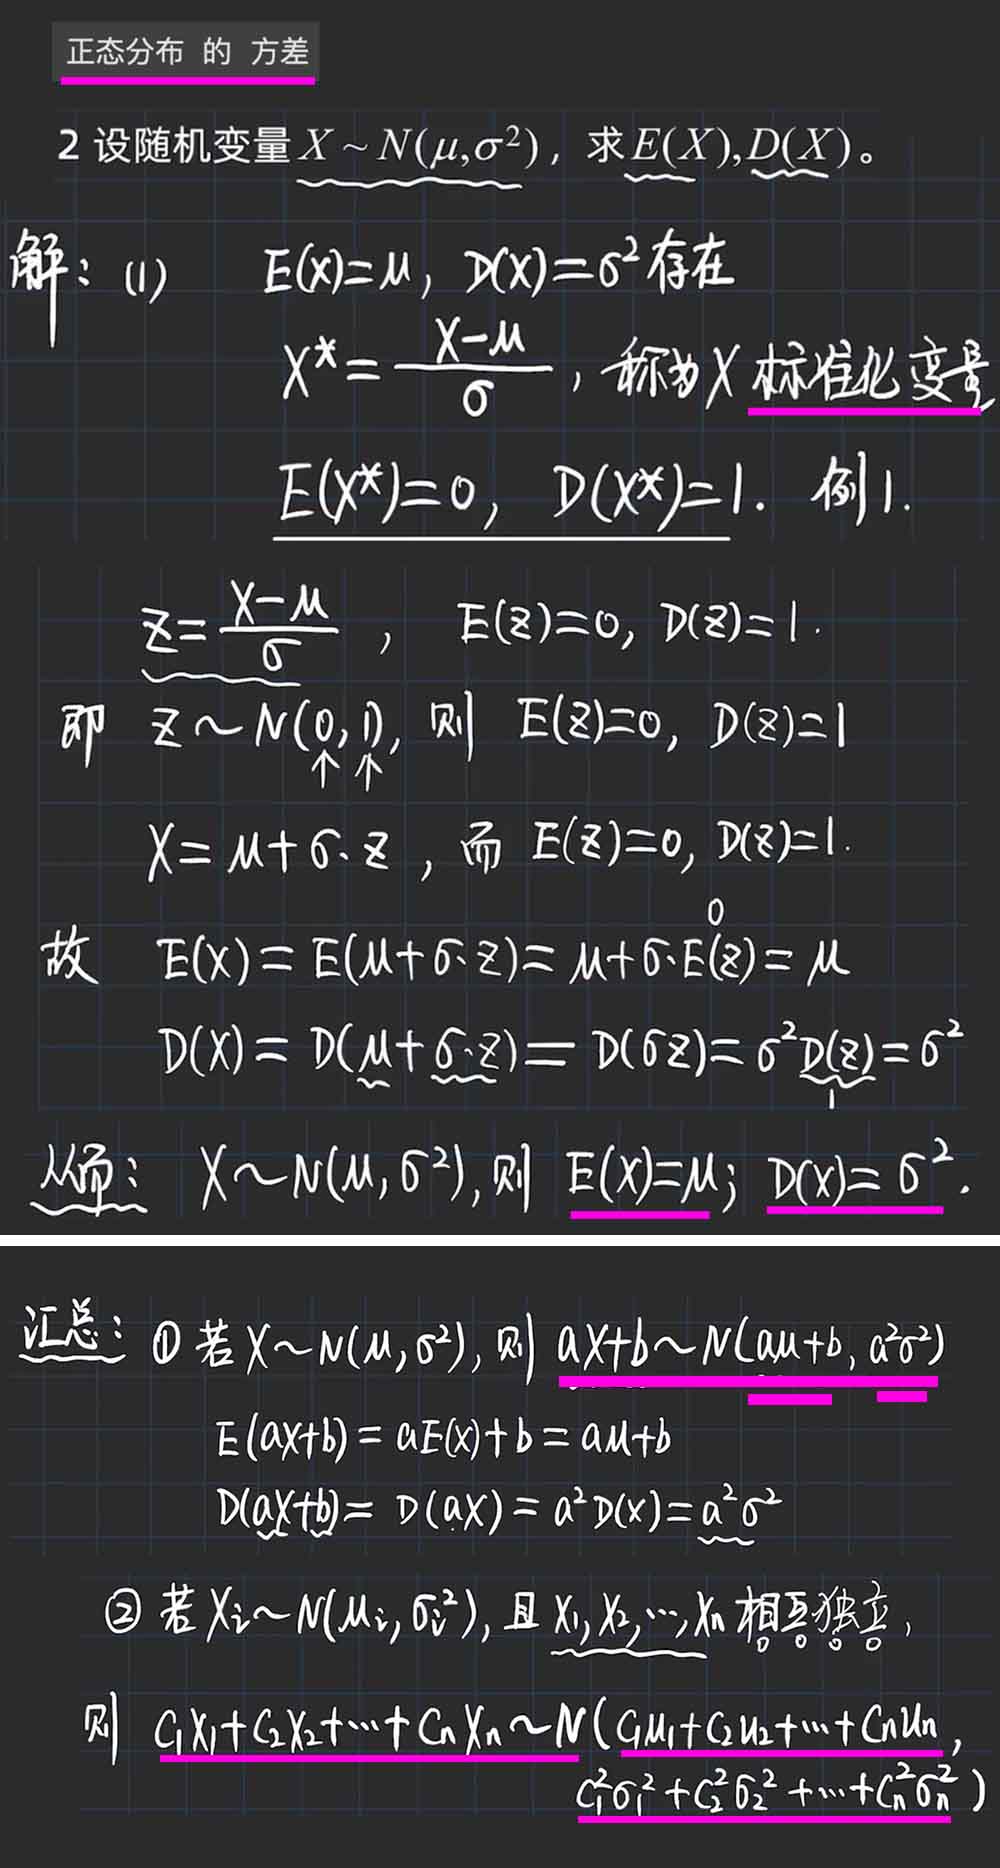 正态分布 的 方差
2 设随机变量X ~ N(μ,σ²)，求E(X),D(X)。
解：(1) E(X)=μ, D(X)=σ²存在
X*=(X-μ)/σ，称为X标准化变量
E(X*)=0, D(X*)=1. 例1.
Z=(X-μ)/σ， E(Z)=0, D(Z)=1.
即 Z~N(0,1), 则 E(Z)=0, D(Z)=1
↑ ↑
X=μ+σ·Z，而 E(Z)=0, D(Z)=1.
0
故 E(X)=E(μ+σ·Z)=μ+σ·E(Z)=μ
D(X)=D(μ+σ·Z)=D(σZ)=σ²D(Z)=σ²
1
从而：X~N(μ,σ²),则 E(X)=μ; D(X)=σ².
汇总：① 若X~N(μ,σ²),则 aX+b~N(aμ+b, a²σ²)
E(aX+b)=aE(X)+b=aμ+b
D(aX+b)=D(aX)=a²D(X)=a²σ²
② 若Xi~N(μi,σi²),且X₁,X₂,…,Xn相互独立,
则 C₁X₁+C₂X₂+…+CnXn~N(C₁μ₁+C₂μ₂+…+Cnμn,
C₁²σ₁²+C₂²σ₂²+…+Cn²σn²)